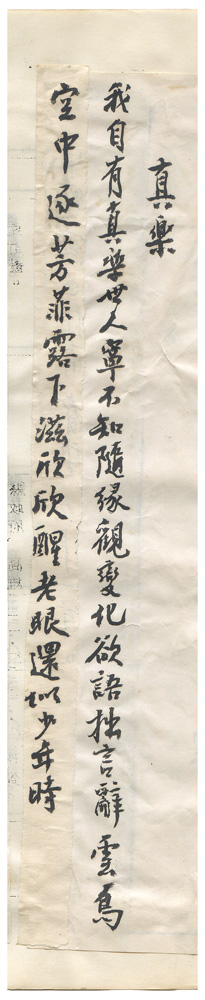 真樂
我自有真樂世人寧不知隨緣觀變化欲語拙言辭雲鳥
空中逐芳菲露下滋欣欣醒老眼還似少年時